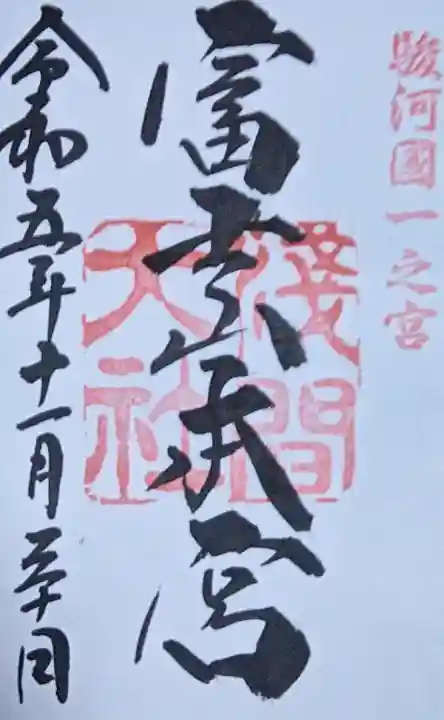 駿河國一之宮
富士山本宮
淺間
大社
令和五年十一月三十日